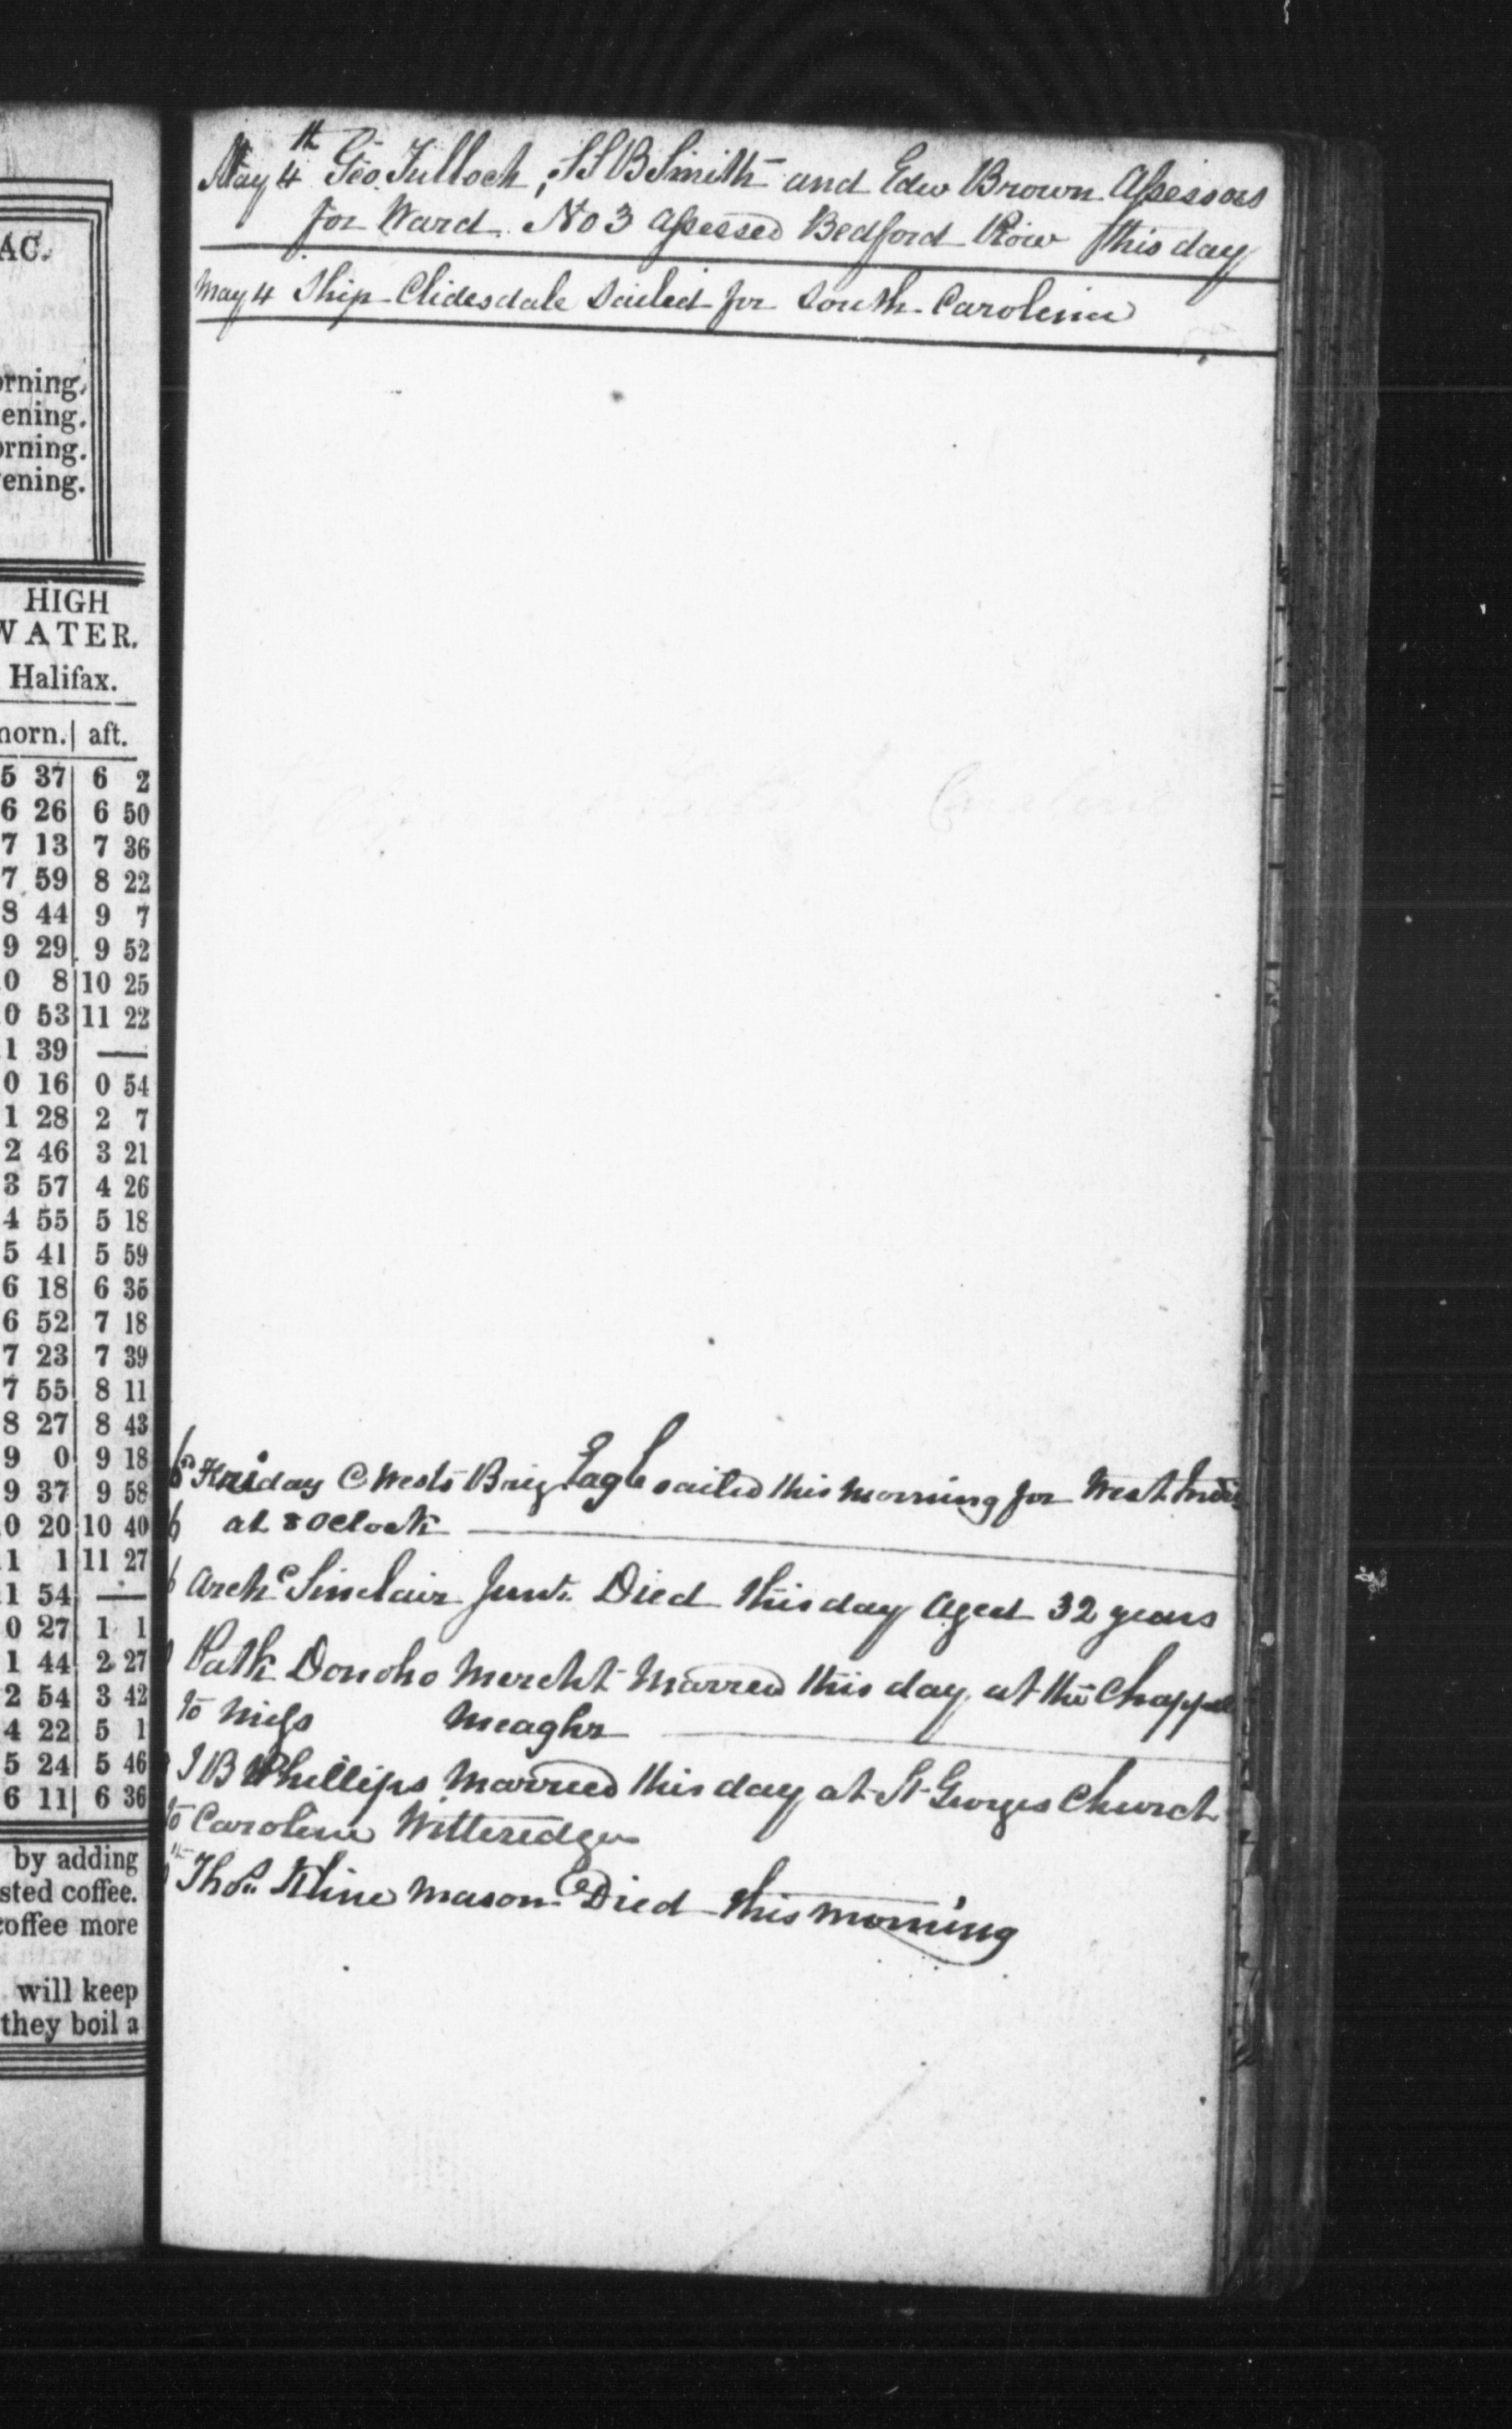 AC.
orning.
ening.
orning.
ening.
HIGH
WATER.
Halifax.
morn. aft.
5 37 6 2
6 26 6 50
7 13 7 36
7 59 8 22
8 44 9 7
9 29 9 52
0 8 10 25
0 53 11 22
1 39 —
0 16 0 54
1 28 2 7
2 46 3 21
3 57 4 26
4 55 5 18
5 41 5 59
6 18 6 35
6 52 7 18
7 23 7 39
7 55 8 11
8 27 8 43
9 0 9 18
9 37 9 58
0 20 10 40
1 1 11 27
1 54 —
0 27 1 1
1 44 2 27
2 54 3 42
4 22 5 1
5 24 5 46
6 11 6 36
by adding
sted coffee.
coffee more
will keep
they boil a
May 4th Geo. Tulloch, SSB Smith and Edw Brown Assessors
for Ward No 3 Assessed Bedford Row this day
May 4 Ship Clidesdale Sailed for South Carolina
Friday C Wests Brig Eagle sailed this morning for West Indi
at 8 oClock
6 Archd Sinclair Junr. Died this day Aged 32 years
Patk Donoho Mercht Marred this day at the Chappel
to Miss Meaghr
J B Phillips Married this day at St Georges Church
to Caroline Witteredge
Thos. Kline Mason Died this morning